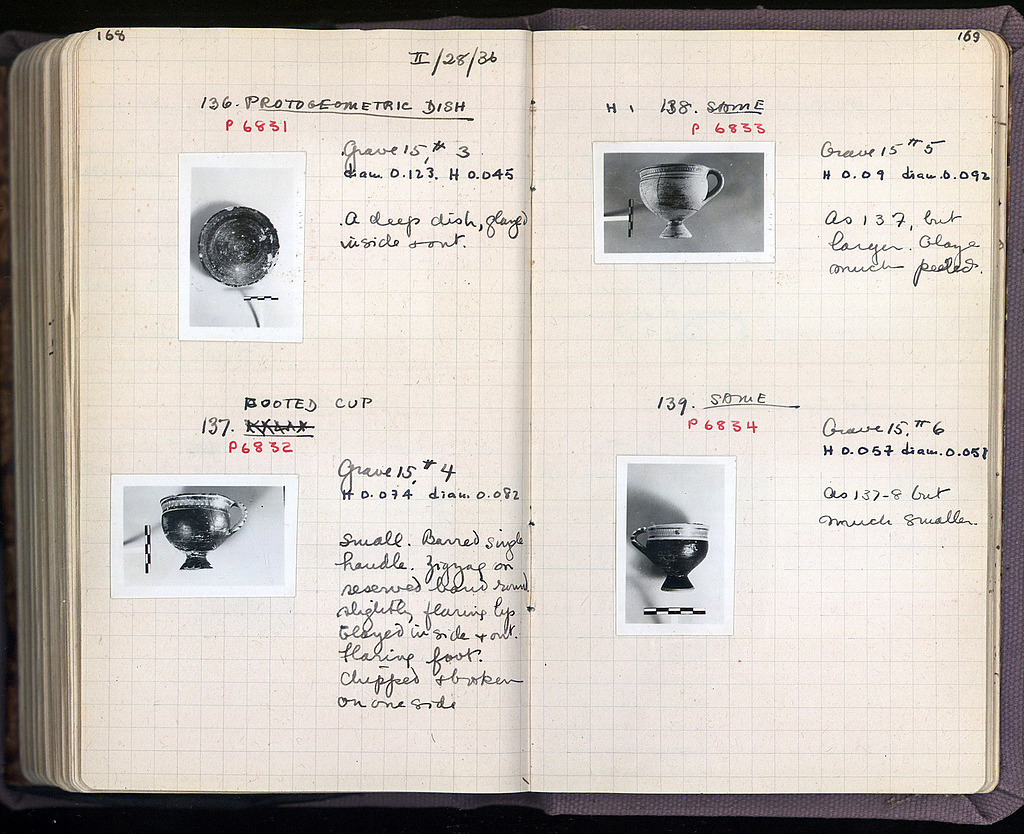 168
II/28/36
136. PROTOGEOMETRIC DISH
P 6831
Grave 15, # 3
diam. 0.123. H 0.045
A deep dish, glazed
inside + out.
FOOTED CUP
137.
P 6832
Grave 15, # 4
H 0.074 diam. 0.082
Small. Barred single
handle. Zigzag on
reserved band round
slightly flaring lip
Glazed inside + out.
Flaring foot.
Chipped + broken
on one side
169
H 1 138. SAME
P 6833
Grave 15 # 5
H 0.09 diam. 0.092
As 137, but
larger. Glaze
much peeled.
139. SAME
P 6834
Grave 15, # 6
H 0.057 diam. 0.058
As 137-8 but
much smaller.